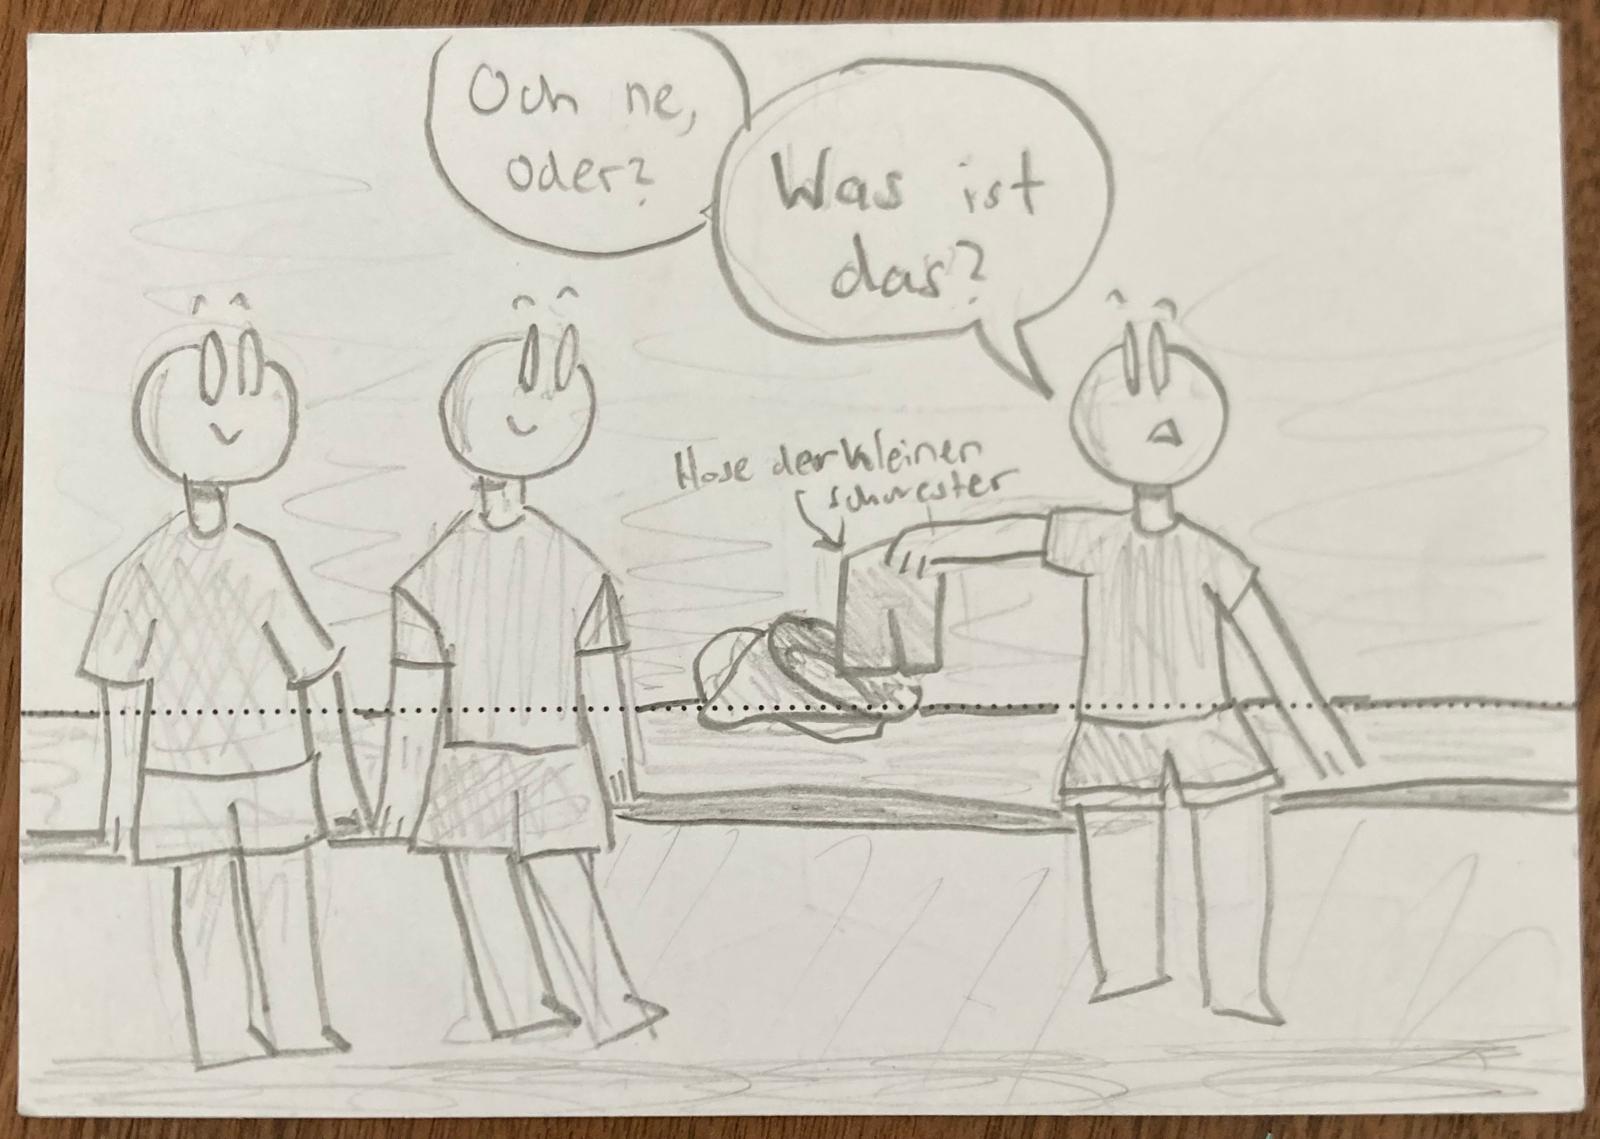 Och ne,
oder?
Was ist
das?
Hose der kleinen
schwester